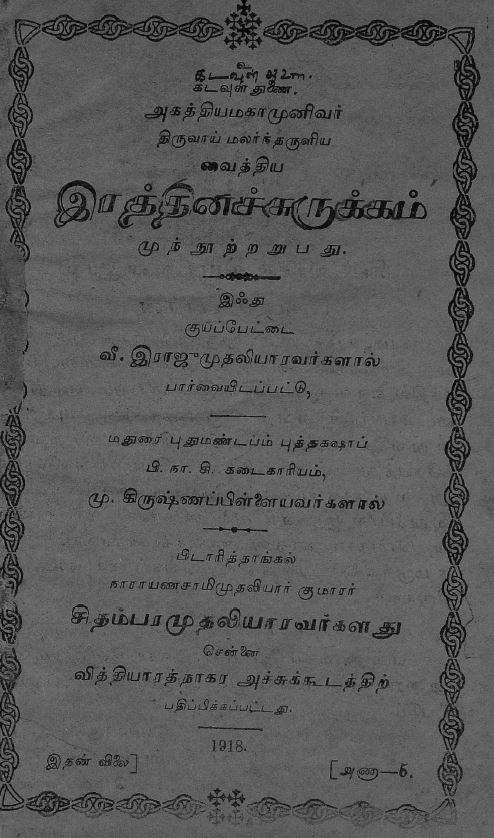 கடவுள் துணை.
அகத்தியமகாமுனிவர்
திருவாய் மலர்ந்தருளிய
வைத்திய
இரத்தினச்சுருக்கம்
முந்நூற்றறுபது.
இஃது
குயப்பேட்டை
வீ. இராஜுமுதலியாரவர்களால்
பார்வையிடப்பட்டு,
மதுரை புதுமண்டபம் புத்தகஷாப்
பி. நா. சி. கடைகாரியம்,
மு. கிருஷ்ணப்பிள்ளையவர்களால்
பிடாரித்தாங்கல்
நாராயணசாமிமுதலியார் குமாரர்
சிதம்பரமுதலியாரவர்களது
சென்னை
வித்தியாரத்நாகர அச்சுக்கூடத்திற்
பதிப்பிக்கப்பட்டது.
1918.
இதன் விலை] [அணா—